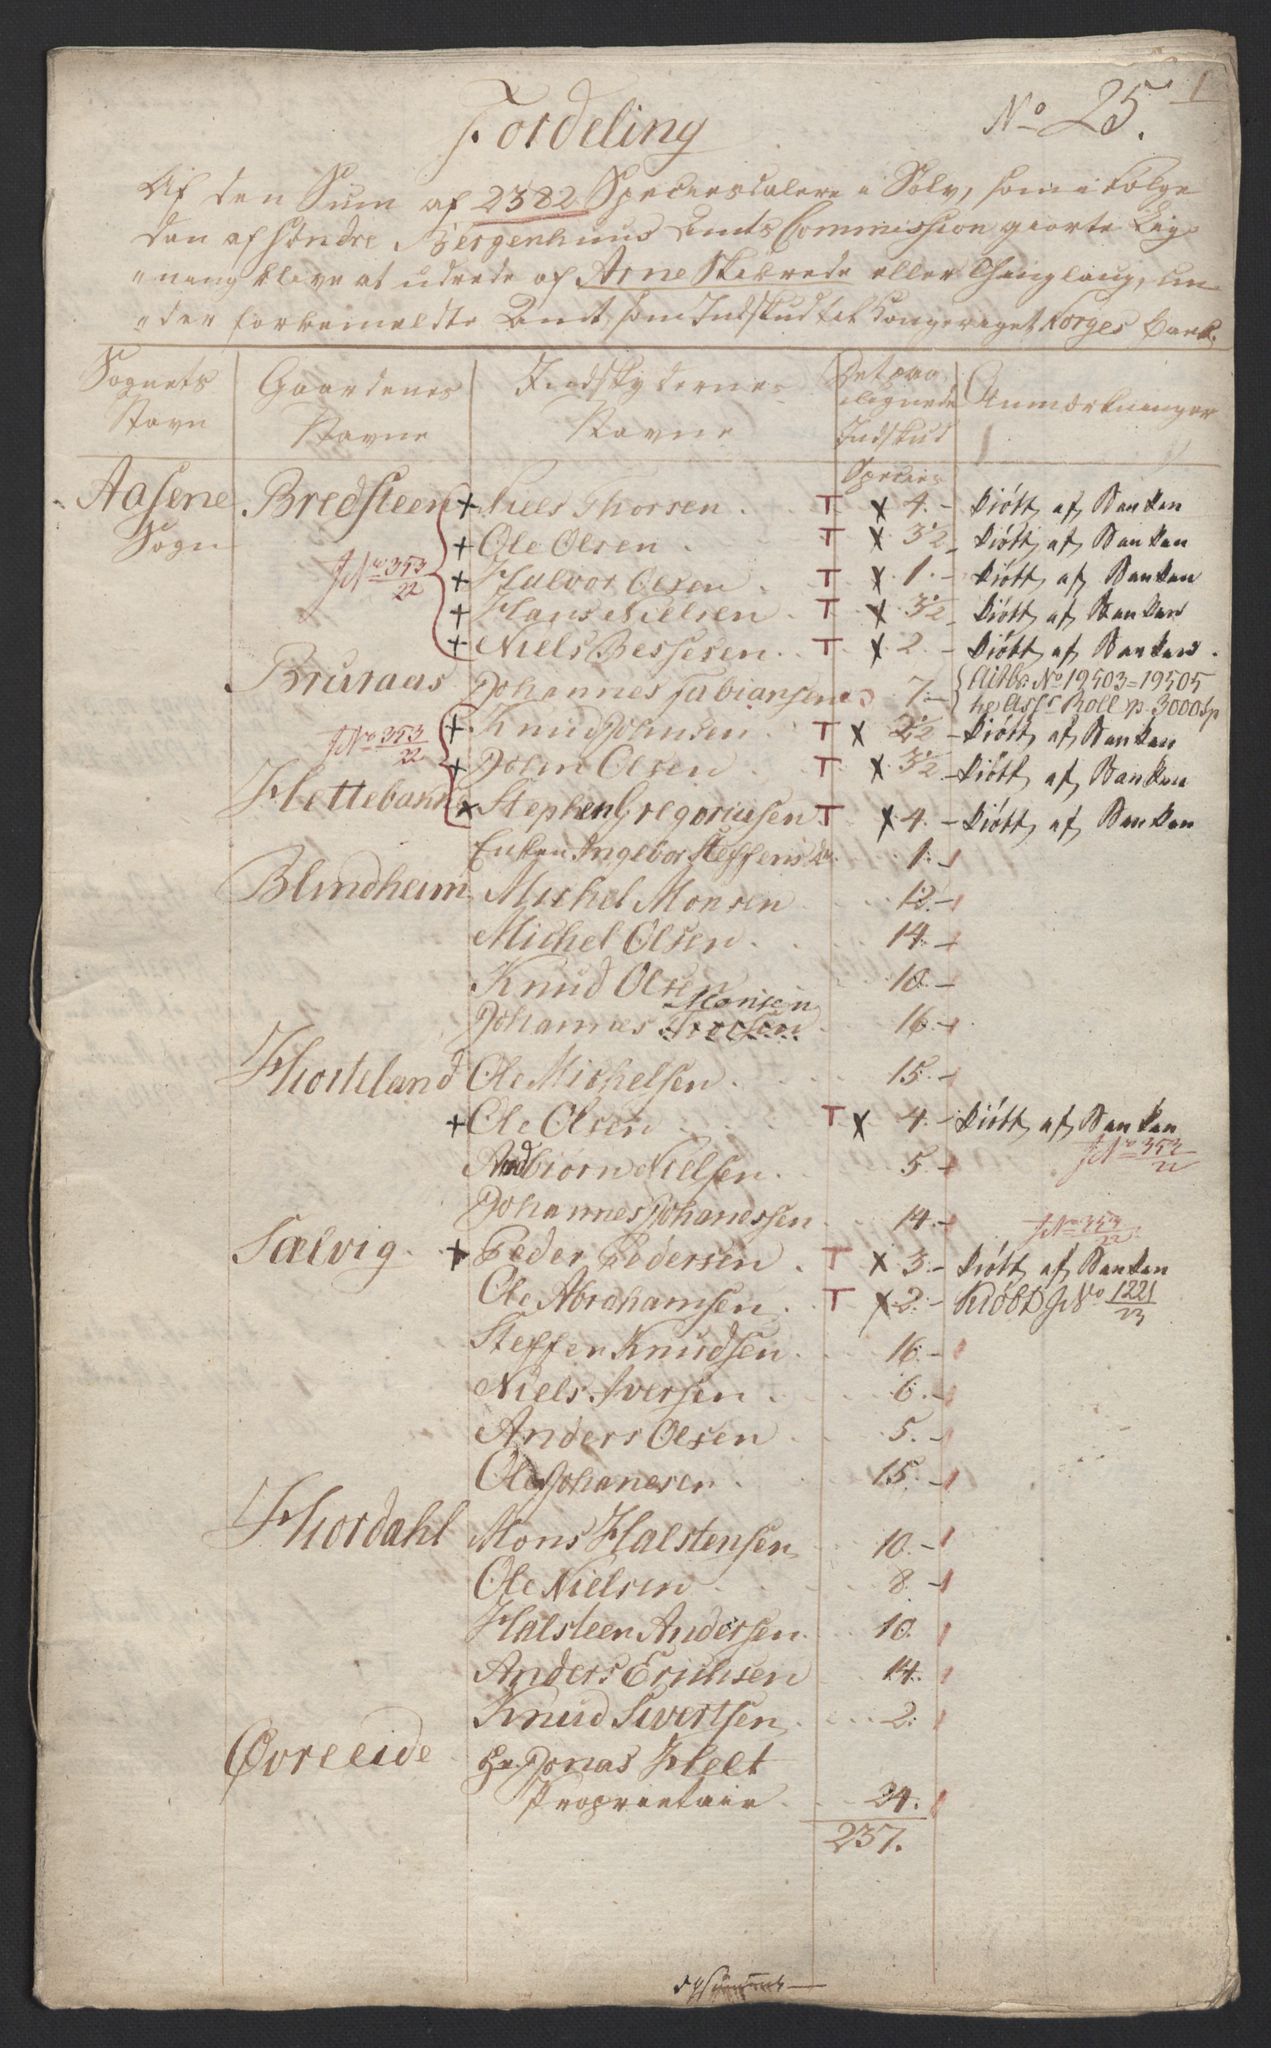 1
No 25.
Fordeling
Af den Sum af 2382 Speciesdalere i Sølv, som i Følge
den af Søndre Bergenhuus Amts Commission giorte Lig-
"ning bleve at udrede af Arne Skibrede eller Thinglaug, un-
"der forbemeldte Amt, som Indskud til Kongeriget Norges Bank.
Sognets Navn | Gaardenes Navne | Indskydernes Navne | Det paalignede Indskud | Anmærkninger
Species
Aasene Sogn | Bredsteen + Niels Thorsen . T x 4. - kiøtt af Banken
+ Ole Olsen . T x 3½ - kiøtt af Banken
J No 353/22 + Halvor Olsen . T x 1. - kiøtt af Banken
+ Hans Nielsen . T x 3½ - kiøtt af Banken
+ Niels Bessesen . T x 2. - kiøtt af Banken.
Bruraas Johannes Fabiansen 7. - No 19503=19505
Ass r Boll p. 3000 Sp
J No 353/22 + Knud Johnsen . T x 2½ - kiøtt af Banken
+ John Olsen . T x 3½ - kiøtt af Banken
Hettebakke x Stephen Gregoriusen T x 4. - kiøtt af Banken
Enken Ingebor Steffensdr 1. -
Blindheim Michel Monsen 12. -
Michel Olsen . 14. -
Knud Olsen 10. -
Monsen
Johannes 16. -
Horteland Ole Michelsen . 15. -
+ Ole Olsen T x 4. - kiøtt af Banken
J No 353/22
Andbiørn Nielsen . 5. -
Johannes Johanessen 14. -
J No 353/22
Sælvig + Peder Pedersen . T x 3. - kiøtt af Banken
Ole Abrahamsen . T x 2. - Kiøbt J No 1221/23
Steffen Knudsen . 16. -
Niels Iversen . 6. -
Anders Olsen . 5. -
Ole Johanesen . 15. -
Hordahl Mons Halstensen 10. -
Ole Nielsen 8 -
Halsteen Andersen . 10.
Anders Erichsen 14.
Knud Sivertsen . 2.
Øvre eide Hr. Jonas Helt
Proprietair . 24.
237.